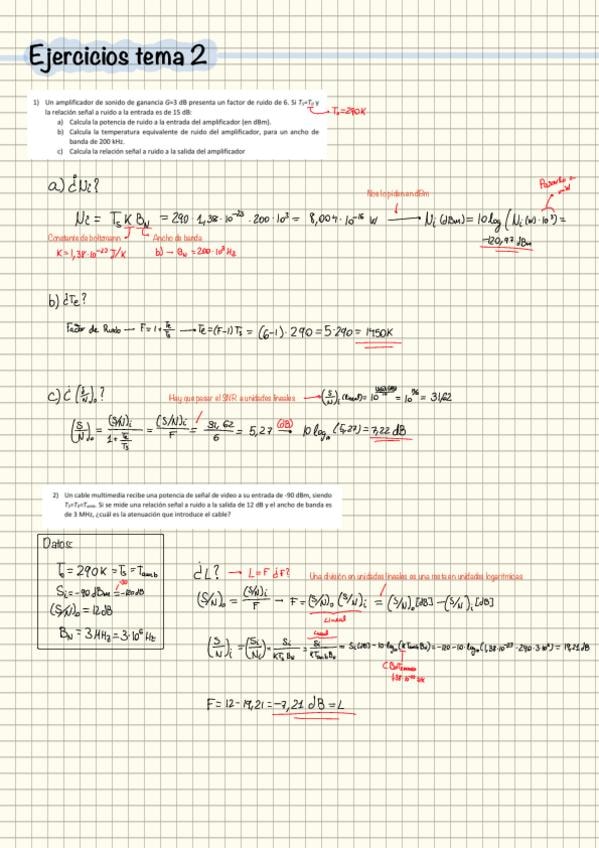 Ejercicios tema 2
1) Un amplificador de sonido de ganancia G=3 dB presenta un factor de ruido de 6. Si Ts=T0 y → T0=290K
la relación señal a ruido a la entrada es de 15 dB:
a) Calcula la potencia de ruido a la entrada del amplificador (en dBm).
b) Calcula la temperatura equivalente de ruido del amplificador, para un ancho de
banda de 200 kHz.
c) Calcula la relación señal a ruido a la salida del amplificador
a) ¿Ni?
Nos lo piden en dBm
Pasarlo a mW
Ni = Ts K BN = 290 · 1,38·10^-23 · 200·10^3 = 8,004·10^-16 W → Ni (dBm) = 10log (Ni (W)·10^3) =
-120,97 dBm
Constante de boltzmann Ancho de banda
K=1,38·10^-23 J/K b) → BN = 200·10^3 Hz
b) ¿Te?
Factor de Ruido → F = 1+ Te/Ts → Te = (F-1) Ts = (6-1) · 290 = 5·290 = 1450K
c) ¿(S/N)o?
Hay que pasar el SNR a unidades lineales → (S/N)i (lineal) = = 31,62
(S/N)o = (S/N)i / (1+ Te/Ts) = (S/N)i / F = 31,62 / 6 = 5,27 (dB) → 10 log10 (5,27) = 7,22 dB
2) Un cable multimedia recibe una potencia de señal de video a su entrada de -90 dBm, siendo
Ts=T0=Tamb. Si se mide una relación señal a ruido a la salida de 12 dB y el ancho de banda es
de 3 MHz, ¿cuál es la atenuación que introduce el cable?
Datos:
T0 = 290K = Ts = Tamb
Si = -90 dBm = -120dB
-30
(S/N)o = 12dB
BN = 3MHz = 3·10^6 Hz
¿L? → L=F ¿F?
Una división en unidades lineales es una resta en unidades logarítmicas
(S/N)o = (S/N)i / F → F = (S/N)o (S/N)i = (S/N)o [dB] - (S/N)i [dB]
Lineal
Lineal
(S/N)i = (Si/Ni) = Si / KTsBN = Si / KTambBN = Si(dB) - 10·log10 (KTambBN) = -120-10·log10(1,38·10^-23 · 290·3·10^6) = 19,21 dB
F = 12 - 19,21 = -7,21 dB = L